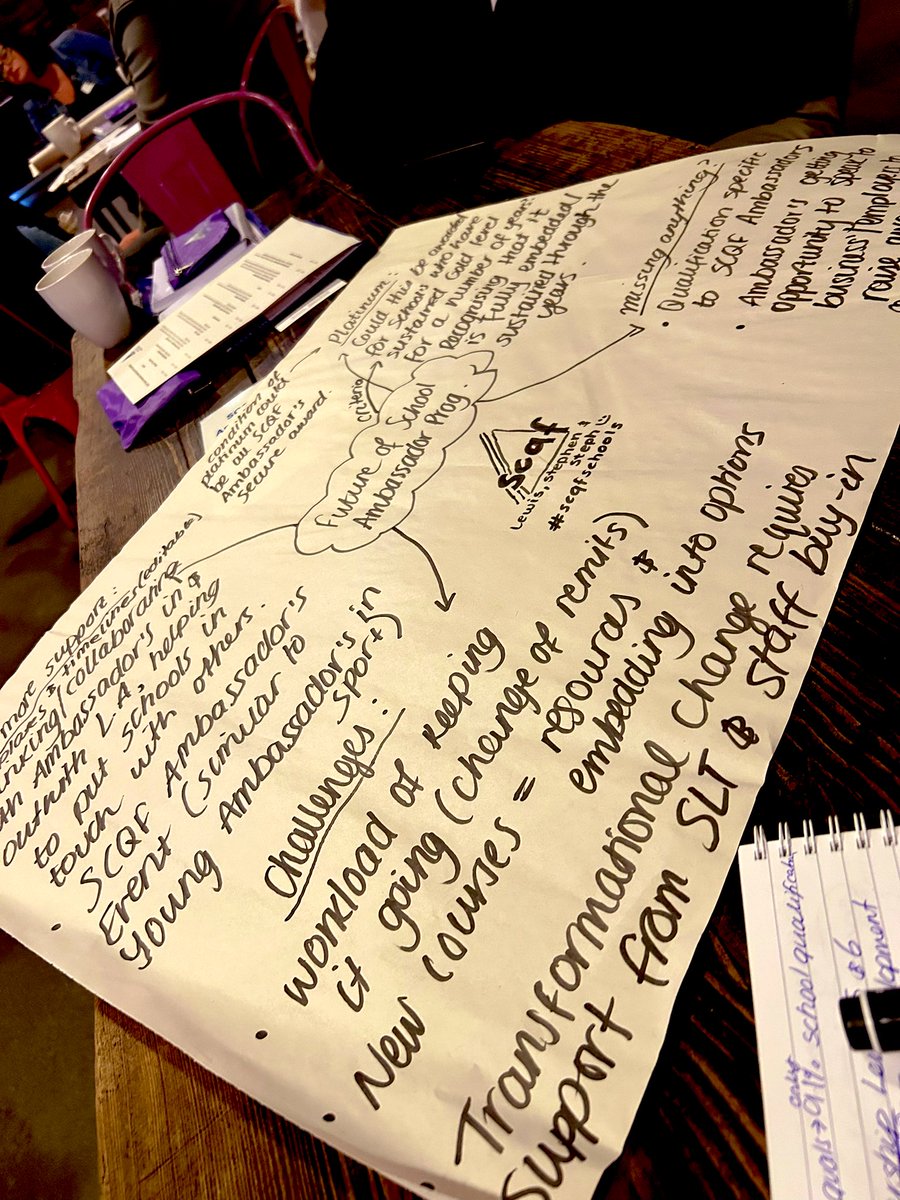 Future of School
Ambassador Prog.
criteria
Platinum:
Could this be awarded
for schools who have
sustained Gold level
for a number of years?
Recognising that it
is fully embedded/
sustained through the
years.
condition of
platinum could
be all SCQF
Ambassador's
secure award.
missing anything?
• Qualification specific
to SCQF Ambassadors
• Ambassador's getting
opportunity to speak to
business/Templates to
raise
scqf
Lewis, Stephen &
Steph
#scqfschools
more support:
& timelines (editable)
collaborating
Ambassador's in &
outwith LA, helping
to put schools in
touch with others.
• SCQF Ambassador's
Event (similar to
Young Ambassador's in
Sport)
Challenges:
• Workload of keeping
it going (change of remits)
• New courses = resources &
embedding into options
• Transformational change requires
support from SLT & staff buy-in
91%. school